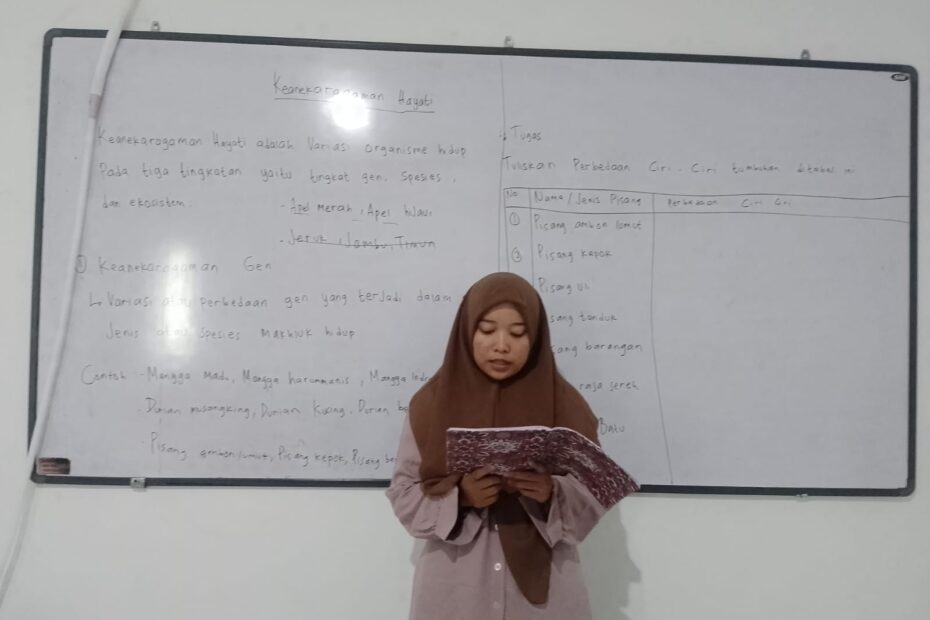 Keanekaragaman Hayati
Keanekaragaman Hayati adalah Variasi organisme hidup
Pada tiga tingkatan yaitu tingkat gen, spesies,
dan ekosistem.
- Apel Merah, Apel hijau
- Jeruk, Jambu, Timun
① Keanekaragaman Gen
↳ Variasi atau perbedaan gen yang terjadi dalam
Jenis atau spesies makhluk hidup
Contoh - Mangga Madu, Mangga harummanis, Mangga Indr
- Durian musangking, Durian Kucing, Durian
- Pisang ambon lumut, Pisang kepok, Pisang
Tugas
Tuliskan Perbedaan Ciri-Ciri tumbuhan ditabel ini
No Nama/Jenis Pisang Perbedaan Ciri Ciri
① Pisang ambon lumut
② Pisang kepok
Pisang uli
sang tanduk
sang barangan
raja sereh
Batu